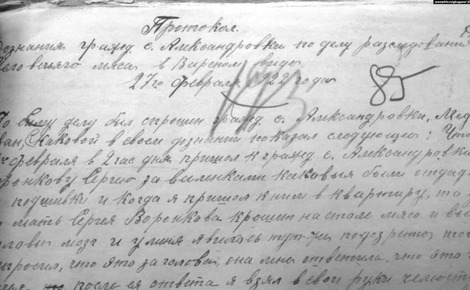 Протокол.
Дознания гражд с. Александровки по делу разследования
человечьяго мяса в Вареном виде
27го Февраля 1922 года
85
По делу был спрошен гражд с. Александровки, Мед
Иван, Какавой в своем дознании показал следующее: Что
Февраля в 2 час дня пришол к гражд с. Александровки
Воронкову Сергею за валинками каковыя были отданы
подшивки и когда я пришол к ним в квартиру, то
мать Сергея Воронкова крошит на столе мясо и
головы мозг и у миня явилось тут же подозрение
спросил, что это за голова, она мне ответила, что это
после ея ответа я взял в свои руки челюсть